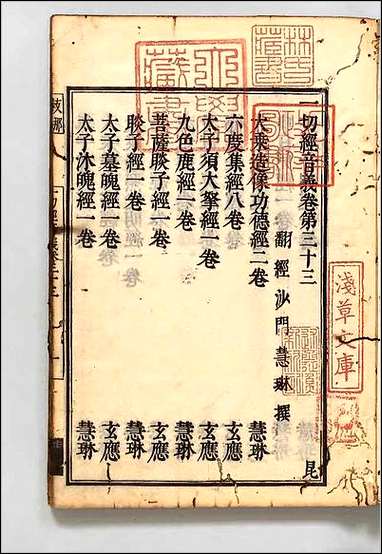 林氏藏書
淺草文庫
一切經音義卷第三十三 昆
翻經沙門慧琳撰
大乘造像功德經二卷 慧琳
六度集經八卷 玄應
太子須大拏經一卷 玄應
九色鹿經一卷 慧琳
菩薩睒子經一卷 玄應
睒子經一卷 慧琳
太子墓魄經一卷 玄應
太子沐魄經一卷 慧琳